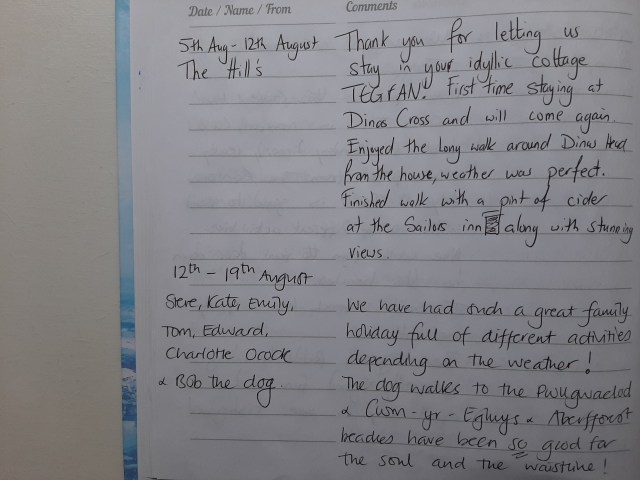 Date / Name / From
Comments
5th Aug - 12th August
The Hill's
Thank you for letting us
stay in your idyllic cottage
TEGFAN! First time staying at
Dinas Cross and will come again.
Enjoyed the long walk around Dinas Head
from the house, weather was perfect.
Finished walk with a pint of cider
at the Sailors inn along with stunning
views.
12th - 19th August
Steve, Kate, Emily,
Tom, Edward,
Charlotte Ocock
& Bob the dog
We have had such a great family
holiday full of different activities
depending on the weather!
The dog walks to the Pwllgwaelod
& Cwm-yr-Eglwys & Aberfforest
beaches have been so good for
the soul and the waistline!